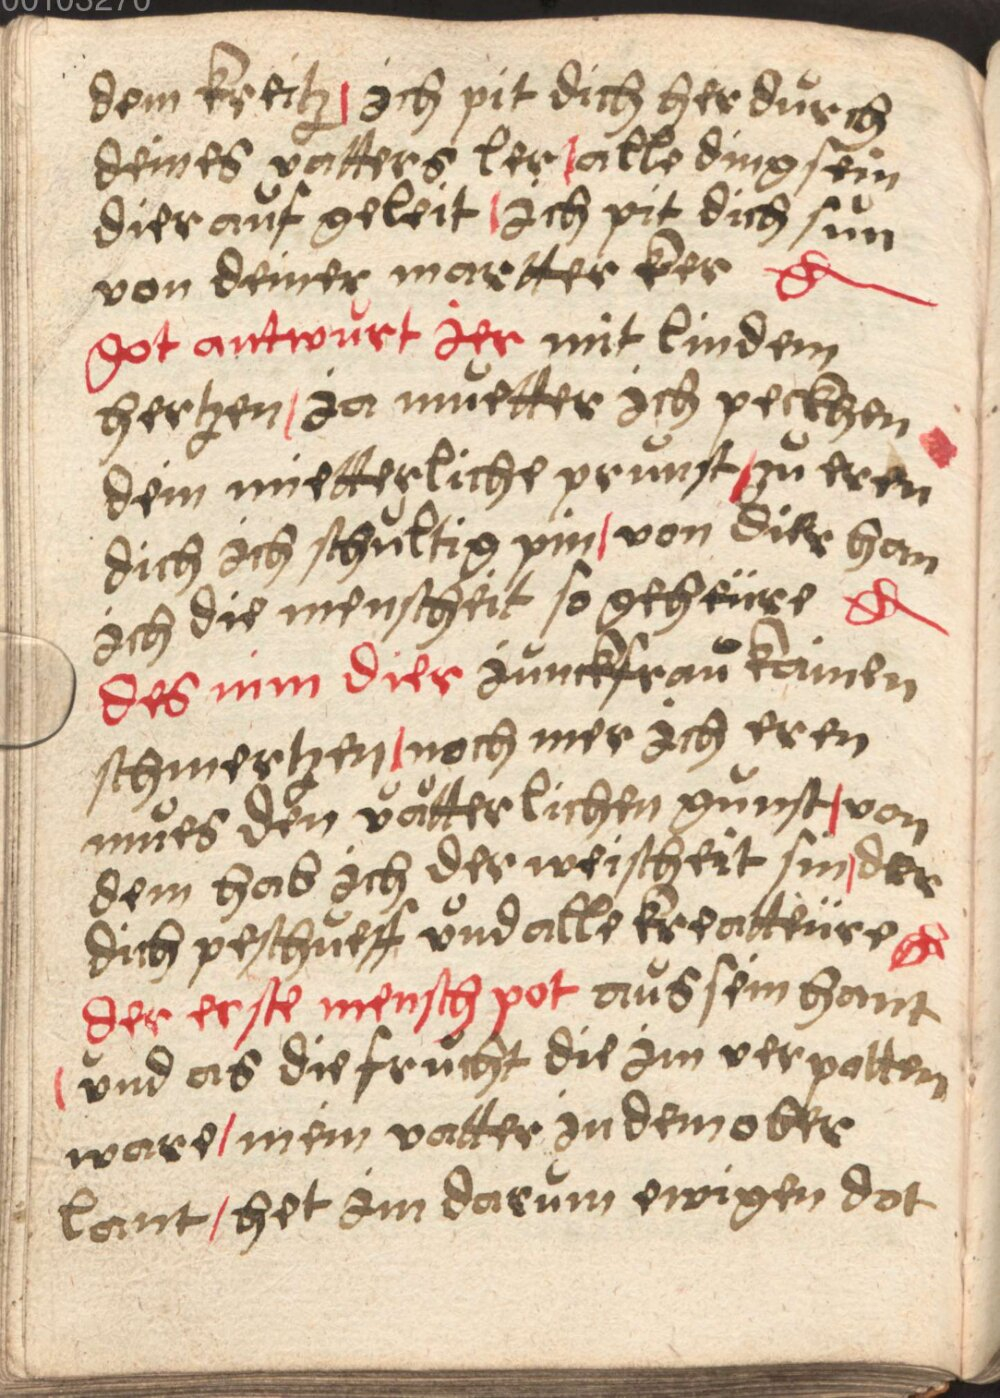 00103270
dem kreitz / jch pit dich her durch
deines vatters ler / alle ding sein
dier auf geleit / jch pit dich sun
von deiner martter ker
got antwurt jer mit lindem
hertzen / ja muetter jch peckhen
dein mietterliche prunst / zu eren
dich jch schultig pin / von dier han
jch die menscheit so geheüre
des nim dier junckfrau kainen
schmertzen / noch mer jch eren
mues den vätterlichen gunst / von
dem hab jch der weischeit sin / der
dich peschueff vnd alle kreatteüre
der erste mensch pot aus sein hant
/ vnd as die frucht die jm verpotten
ware / mein vatter jn dem ober
lant / het jm darum ewigen dot